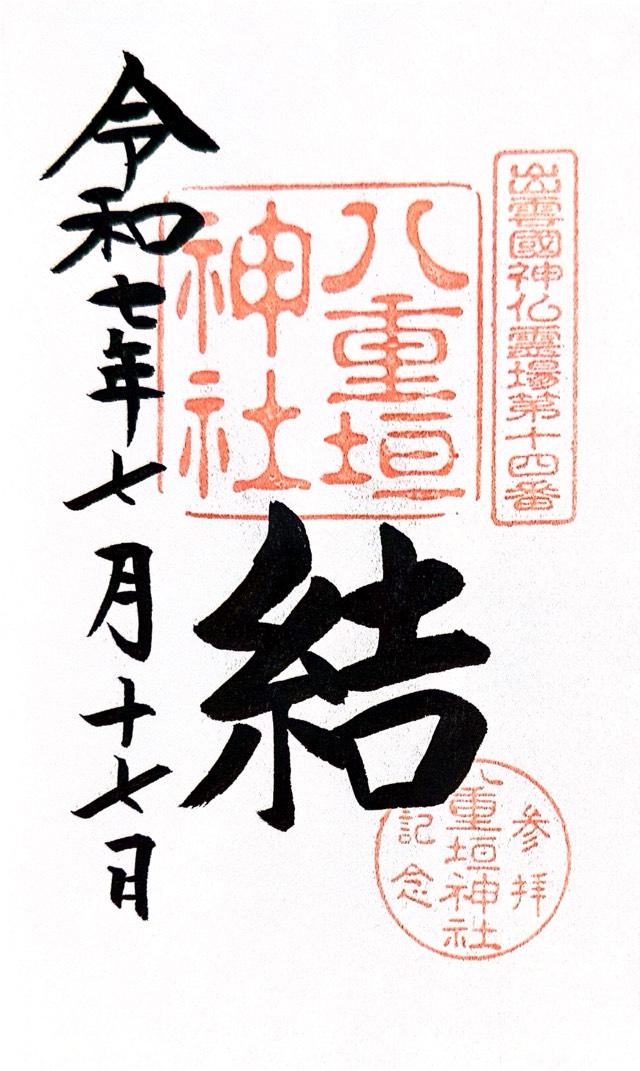 出雲國神仏霊場第十四番
八重垣
神社
結
令和七年七月十七日
参拝
八重垣神社
記念